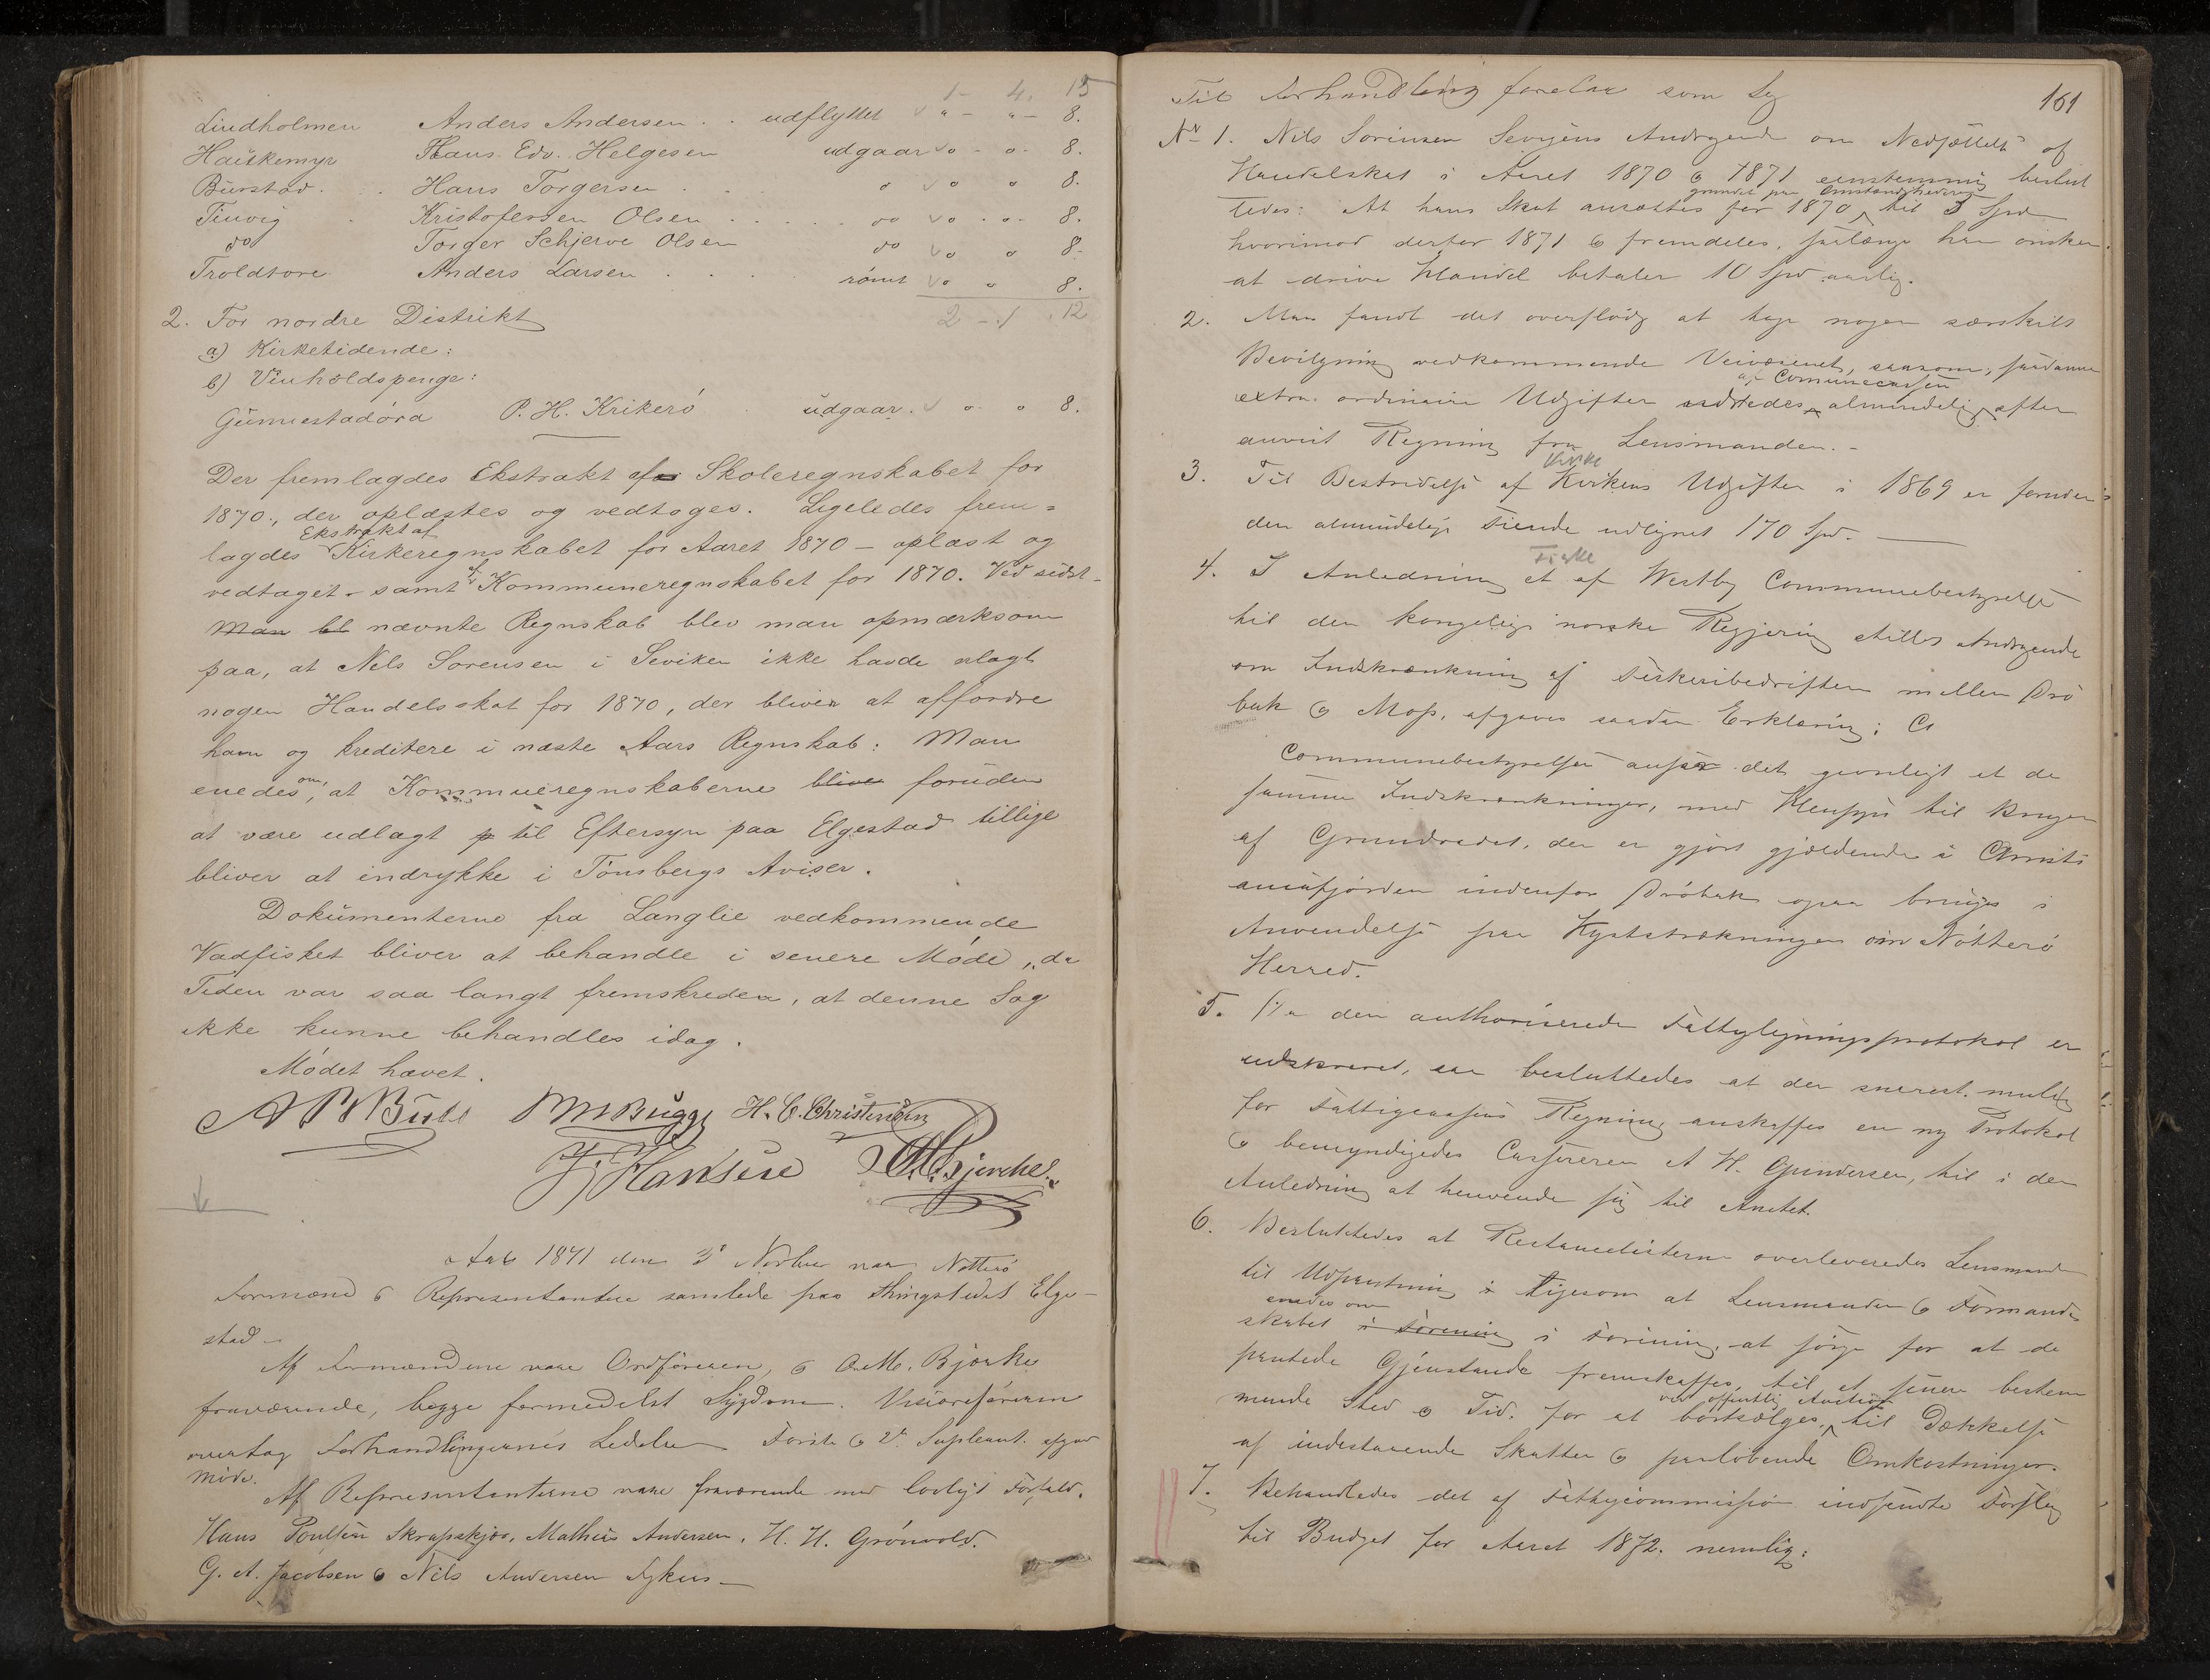 1- 4. 15
Lindholmen Anders Andersen . . udflyttet " - " - 8.
Hauskemyr Hans Edv. Helgesen udgaar o - o - 8.
Burstad . . Hans Torgersen . . o o o 8.
Tinvig . Kristofersen Olsen . . . . . do o . o - 8.
do Torger Schjerve Olsen do o o 8.
Troldtore Anders Larsen . . . rømt o o 8.
2 - 1 . 12
2. For nordre Distrikt
a) Kirketidende:
b) Vinholdspenge:
P. H. Krikerö udgaar. o o 8.
Der fremlagdes Ekstrakt af Skoleregnskabet for
1870., der oplæstes og vedtoges. Ligeledes frem=
Ekstrakt af
lagdes Kirkeregnskabet for Aaret 1870 – oplæst og
vedtaget – samt af Kommuneregnskabet for 1870. Ved sidst-
Man bl nævnte Regnskab blev man opmærksom
paa, at Nels Sorensen i Seviken ikke havde erlagt
nogen Handelsskat for 1870, der bliver at affordre
ham og kreditere i næste Aars Regnskab: Man
enedes om, at Kommueregnskaberne blive foruden
at være udlagt p til Eftersyn paa Elgestad tillige
bliver at indrykke i Tönsbergs Aviser.
Dokumenterne fra Langlie vedkommende
Vadfisket bliver at behandle i senere Møde, da
Tiden var saa langt fremskreden, at denne Sag
ikke kunne behandles idag.
Mödet hævet.
Bugge H. C. Christensen
J. Hansen
Aar 1871 den 3' Novbr var Nötterö
Formænd & Repræsentantere samlede paa Thingstedet Elge-
stad –
Af Formændene vare Ordföreren, & O. M. Bjerke
fraværende, begge formedelst Sygdom. Viseordföreren
overtog Forhandlingernes Ledelse Förste & 2' Supleant. afgav
Möde.
Af Repræsentanterne vare fraværende med lovligt Forfald.
Hans Poulsen Skrapskjær, Mathias Andersen, H. H. Grönvold.
G. A. Jacobsen & Nils Andersen
161
Til Forhandling forelaa som
No 1. Nils Sörensen Sevigens Andragende om Nedsættelse af
Handelskat i Aaret 1870 & 1871 eenstemmig beslut
grundet paa Omstændighederne
tedes: At hans Skat ansættes for 1870 til 5 Spd
hvorimod derfor 1871 & fremdeles, saalænge han önsker
at drive Handel betaler 10 Spd aarlig.
2. Man fandt det overflödig at tage nogen særskilt
Bevilgning vedkommende Veivæsenet, saasom, saadanne
af Communecassen
extra ordinaire Udgifter udredes almindelig efter
anviist Regning fra Lensmanden. –
Kirke
3. Til Bestridelse af Kirkens Udgifter i 1869 er foruden
den almindelige Tiende udlignet 170 Spd.
Fiske
4. I Anledning et af Westby Communebestyrelse
til den kongelige norske Regjering stillet Andragende
om Indskrænkning af Fiskeribedriften mellem Drö
bak & Moss, afgaves saadan Erklæring:
Communebestyrelsen anser det gavnligt at de
samme Indskrænkninger, med Hensyn til Brugen
af Grundvadet, der er gjort gjældende i Christi
aniafjorden indenfor Dröbak ogsaa bringes i
Anvendelse paa Kyststrækningen om Nötterö
Herred.
5. Da den authoriserede Fattigligningsprotokol er
udskrevet, saa besluttedes at der snarest mulig
for Fattigcassens Regning anskaffes en ny Protokol
& bemyndigedes Cassereren A H. Gundersen, til i den
Anledning at henvende sig til Amtet.
6. Besluttedes at Restancelisterne overleveredes Lensmanden
til Udpantning i ligesom at Lensmanden & Formand-
enedes om
skabet i Forening i Forening, at sörge for at de
pantede Gjenstande fremskaffes, til et senere bestem
ved offentlig Auction
mende Sted & Tid. for at bortsælges til Dækkelse
af indestaaende Skatter & paalöbende Omkostninger.
7. Behandledes det af Fattigcommission indsendte Forslag
til Budget for Aaret 1872. nemlig: